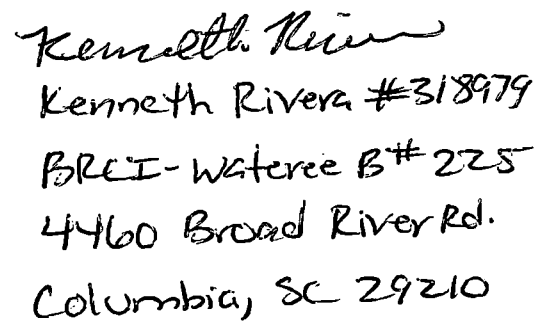 Kenneth Rivera
Kenneth Rivera #318979
BRCI-Wateree B# 225
4460 Broad River Rd.
Columbia, SC 29210